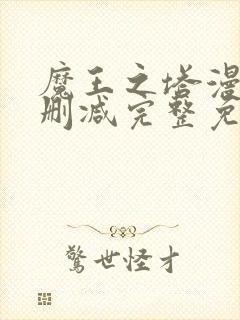 魔王之塔漫
删减完整免
驚世怪才